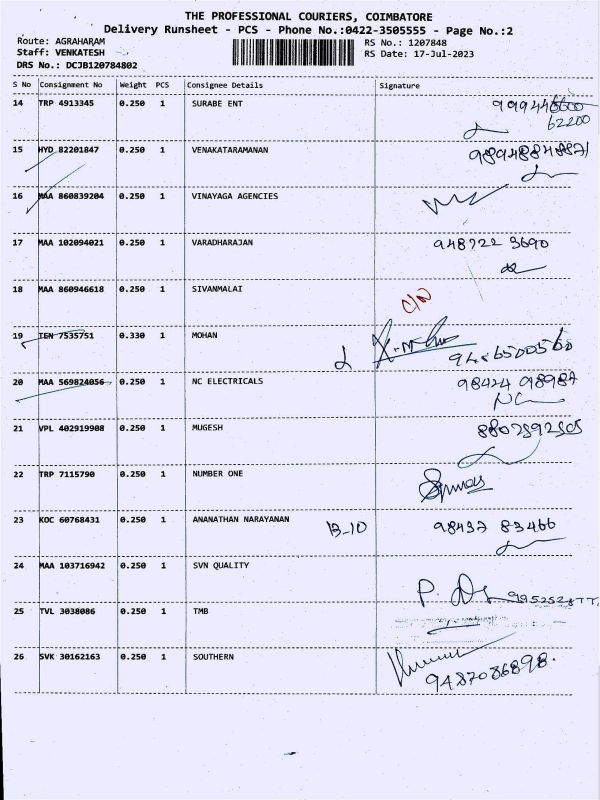 THE PROFESSIONAL COURIERS, COIMBATORE
Delivery Runsheet - PCS - Phone No.:0422-3505555 - Page No.:2
Route: AGRAHARAM RS No.: 1207848
Staff: VENKATESH RS Date: 17-Jul-2023
DRS No.: DCJB120784802
S No Consignment No Weight PCS Consignee Details Signature
14 TRP 4913345 0.250 1 SURABE ENT
62200
15 HYD 82201847 0.250 1 VENAKATARAMANAN
16 MAA 860839204 0.250 1 VINAYAGA AGENCIES
17 MAA 102094021 0.250 1 VARADHARAJAN 948722 3690
18 MAA 860946618 0.250 1 SIVANMALAI
19 TEN 7535751 0.330 1 MOHAN
20 MAA 569824056 0.250 1 NC ELECTRICALS 98424 98987
21 VPL 402919908 0.250 1 MUGESH
22 TRP 7115790 0.250 1 NUMBER ONE
23 KOC 60768431 0.250 1 ANANATHAN NARAYANAN 13-10 98437 83466
24 MAA 103716942 0.250 1 SVN QUALITY
25 TVL 3038086 0.250 1 TMB
26 SVK 30162163 0.250 1 SOUTHERN
9487086898.